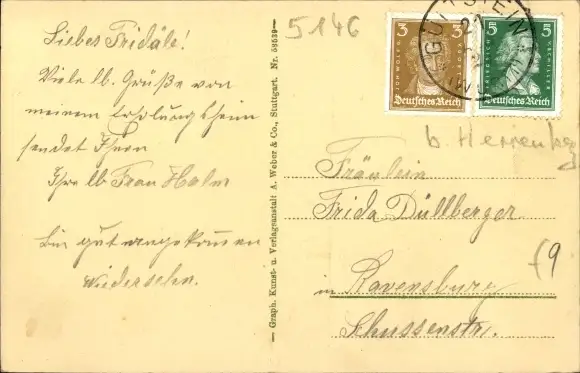 5146
Liebes Fridäle!
Viele lb. Grüße von
meinem Erholungsheim
sendet Ihnen
Ihre lb Frau Halm
Bin gut angekommen
Wiedersehn.
— Graph. Kunst- u. Verlagsanstalt A. Weber & Co., Stuttgart. Nr. 58539 —
3 3
JOH WOLFG
Deutsches Reich
5 5
FRIEDRICH
Deutsches Reich
GÜLTSTEIN
b. Herrenbg
Fräulein
Frida Düllberger
in Ravensburg
Schussenstr.
f9